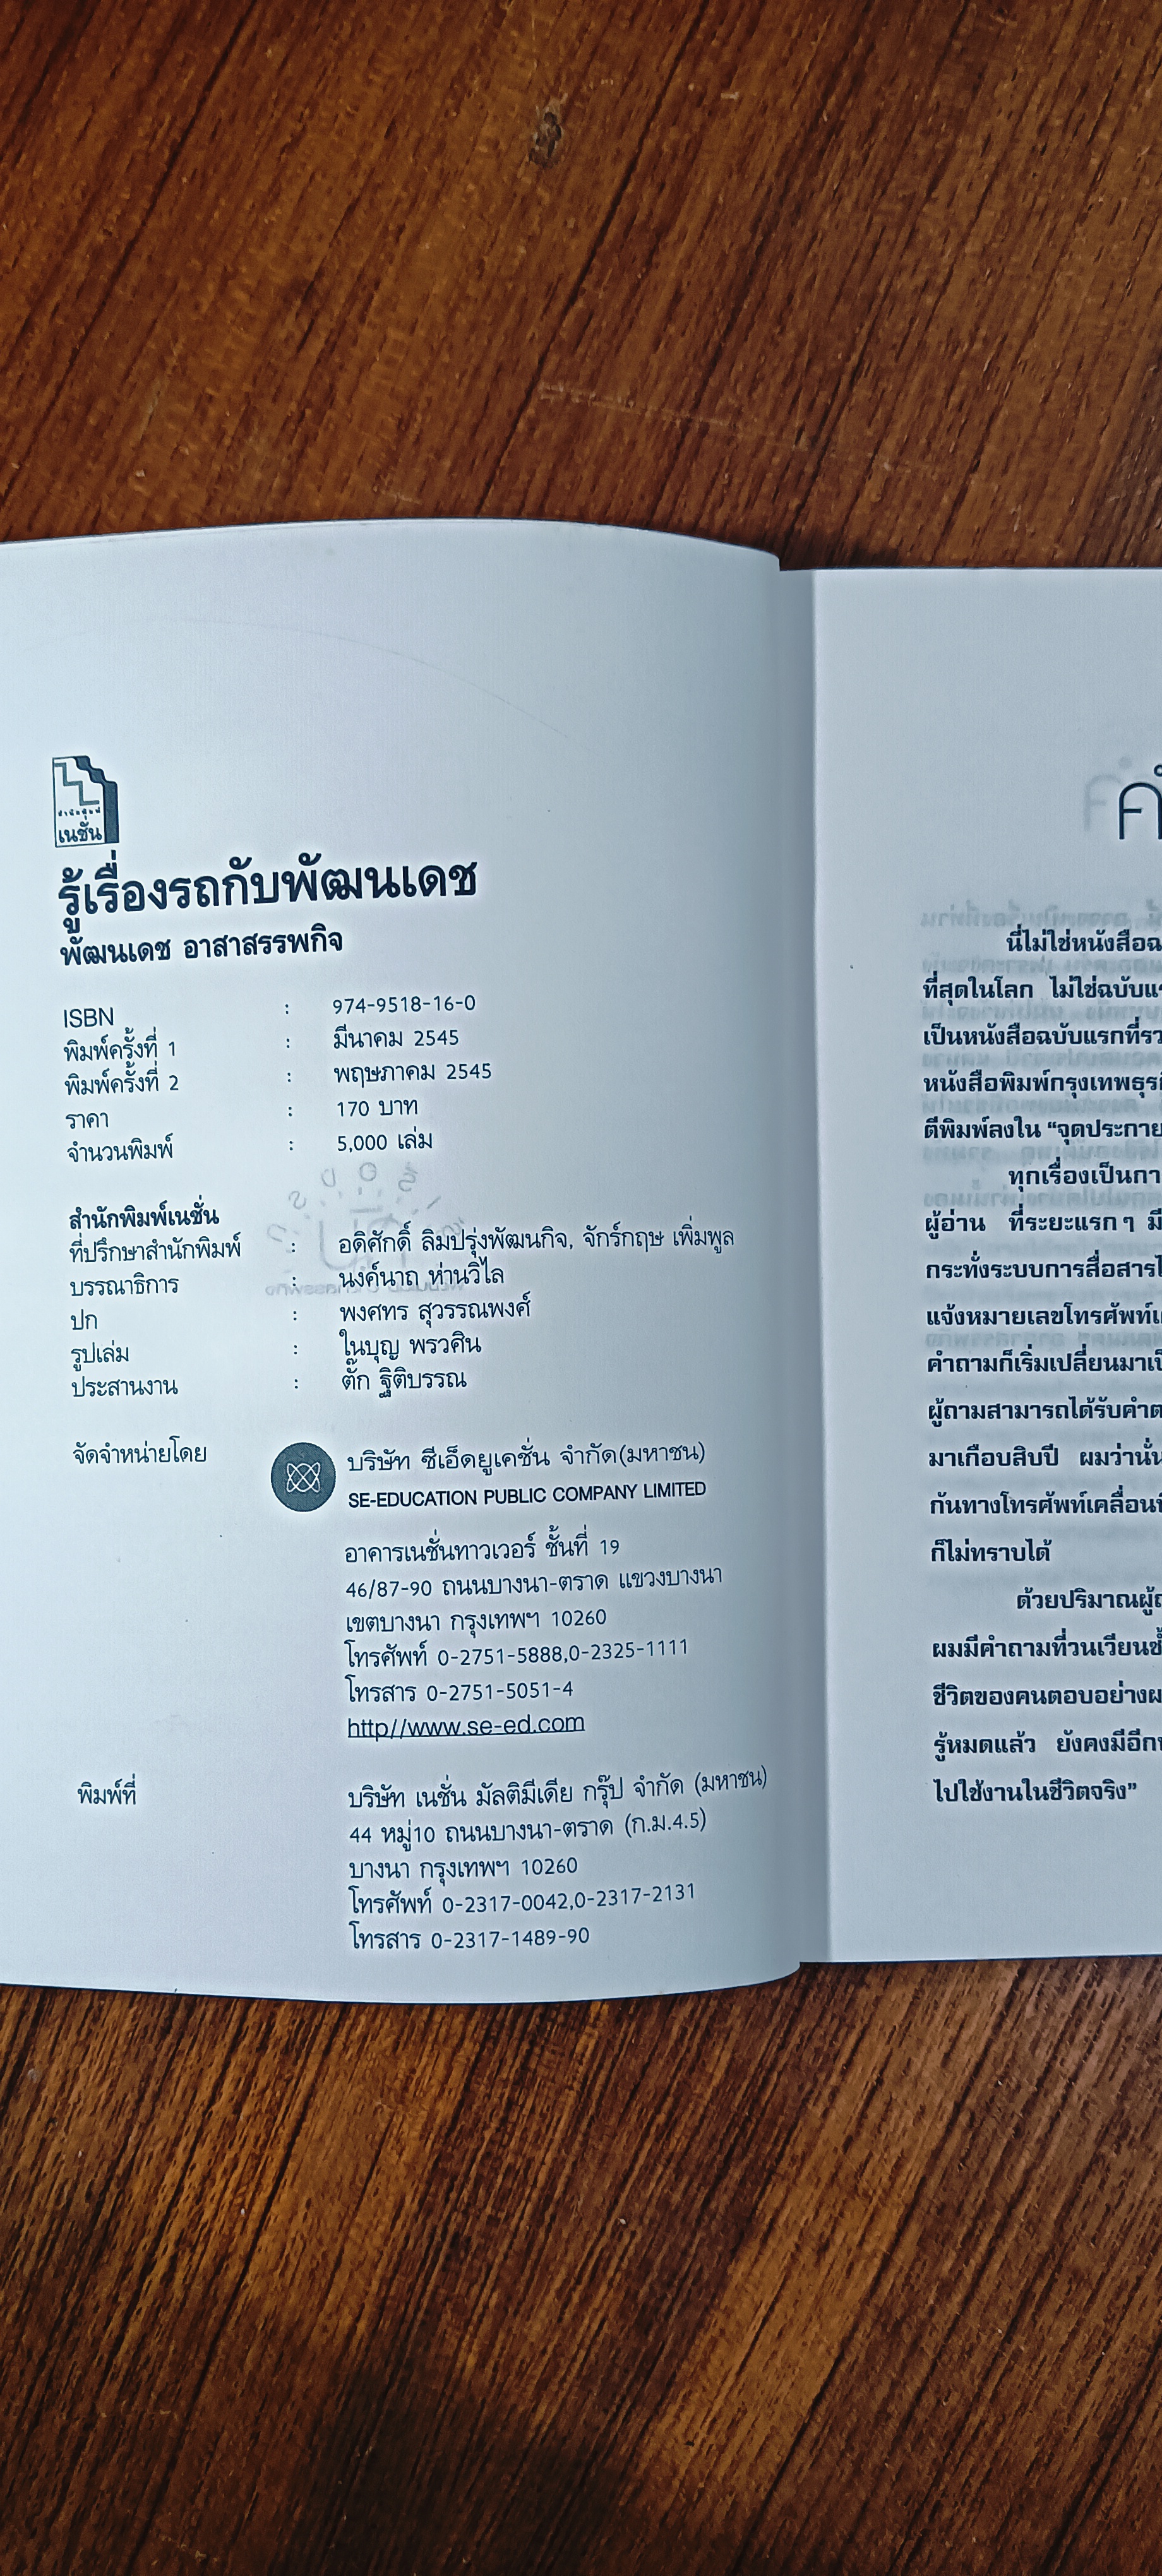 สำนักพิมพ์
เนชั่น
รู้เรื่องรถกับพัฒนเดช
พัฒนเดช อาสาสรรพกิจ
ISBN : 974-9518-16-0
พิมพ์ครั้งที่ 1 : มีนาคม 2545
พิมพ์ครั้งที่ 2 : พฤษภาคม 2545
ราคา : 170 บาท
จำนวนพิมพ์ : 5,000 เล่ม
สำนักพิมพ์เนชั่น
ที่ปรึกษาสำนักพิมพ์ : อดิศักดิ์ ลิมปรุ่งพัฒนกิจ, จักร์กฤษ เพิ่มพูล
บรรณาธิการ : นงค์นาถ ห่านวิไล
ปก : พงศทร สุวรรณพงศ์
รูปเล่ม : ในบุญ พรวศิน
ประสานงาน : ตั๊ก ฐิติบรรณ
จัดจำหน่ายโดย บริษัท ซีเอ็ดยูเคชั่น จำกัด(มหาชน)
SE-EDUCATION PUBLIC COMPANY LIMITED
อาคารเนชั่นทาวเวอร์ ชั้นที่ 19
46/87-90 ถนนบางนา-ตราด แขวงบางนา
เขตบางนา กรุงเทพฯ 10260
โทรศัพท์ 0-2751-5888,0-2325-1111
โทรสาร 0-2751-5051-4
http//www.se-ed.com
พิมพ์ที่ บริษัท เนชั่น มัลติมีเดีย กรุ๊ป จำกัด (มหาชน)
44 หมู่10 ถนนบางนา-ตราด (ก.ม.4.5)
บางนา กรุงเทพฯ 10260
โทรศัพท์ 0-2317-0042,0-2317-2131
โทรสาร 0-2317-1489-90
นี่ไม่ใช่หนังสือฉ
ที่สุดในโลก ไม่ใช่ฉบับแร
เป็นหนังสือฉบับแรกที่รว
หนังสือพิมพ์กรุงเทพธุร
ตีพิมพ์ลงใน “จุดประกาย
ทุกเรื่องเป็นกา
ผู้อ่าน ที่ระยะแรกๆ มี
กระทั่งระบบการสื่อสาร
แจ้งหมายเลขโทรศัพท์
คำถามก็เริ่มเปลี่ยนมาเป็
ผู้ถามสามารถได้รับคำต
มาเกือบสิบปี ผมว่านั่น
กันทางโทรศัพท์เคลื่อน
ก็ไม่ทราบได้
ด้วยปริมาณผู้ถ
ผมมีคำถามที่วนเวียนซ้
ชีวิตของคนตอบอย่างผ
รู้หมดแล้ว ยังคงมีอีก
ไปใช้งานในชีวิตจริง”